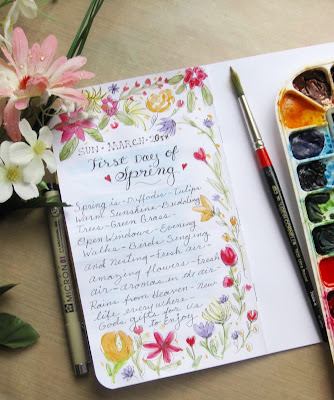 SUN · MARCH · 20th
First Days of
Spring
Spring is - Daffodils - Tulips
Warm Sunshine - Budding
Trees - Green Grass -
Open Windows - Evening
Walks - Birds Singing
and Nesting - Fresh air -
amazing flowers - Fresh
air - aromas in the air -
Rains from Heaven - New
life everywhere -
Gods gifts for us
to Enjoy
MICRON